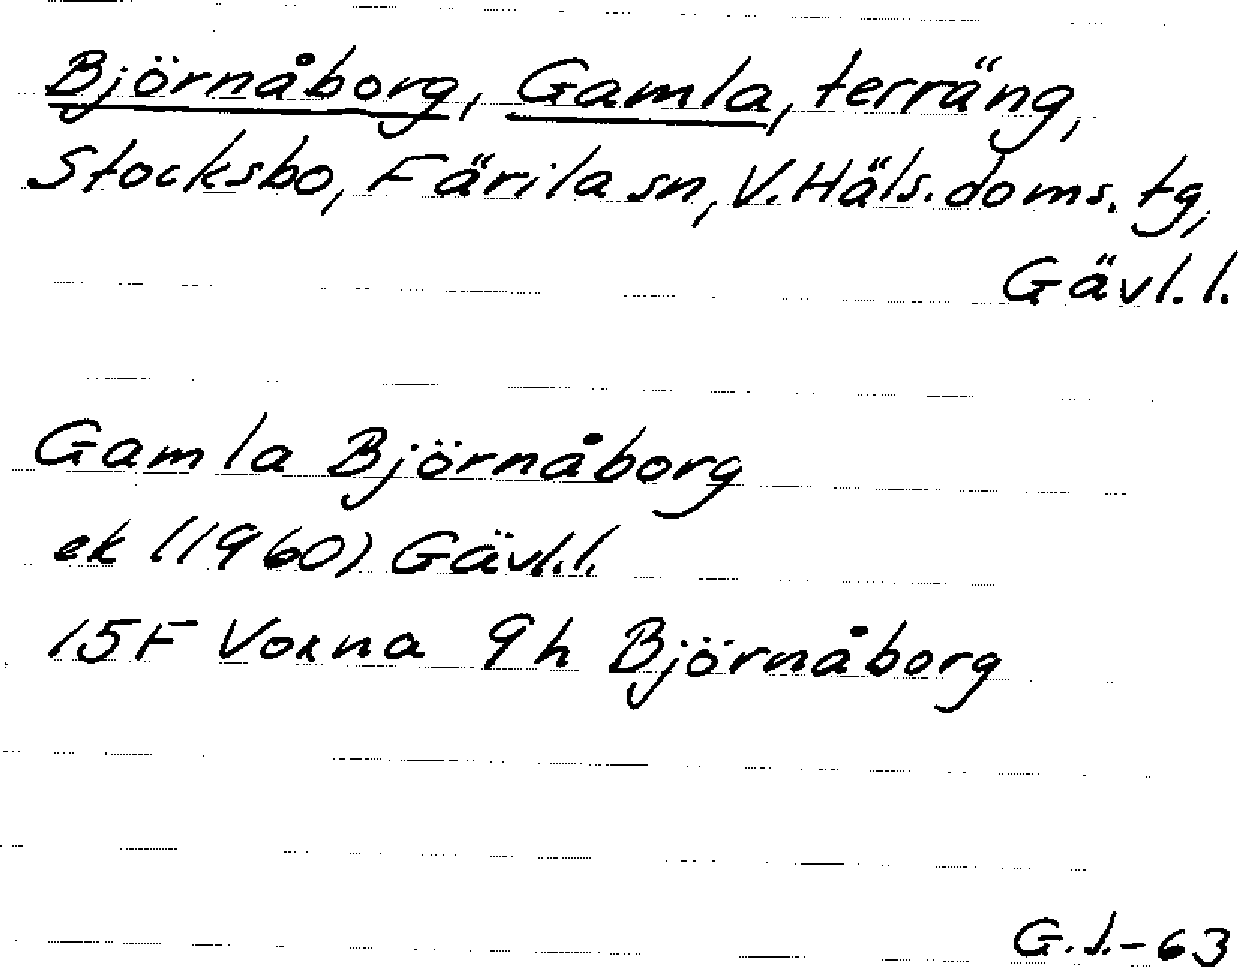 Björnåborg, Gamla, terräng,
Stocksbo, Färila sn, V. Häls. doms. tg,
Gävl. l.
Gamla Björnåborg
ek (1960) Gävl. l.
15F Voxna 9h Björnåborg
G.J.-63